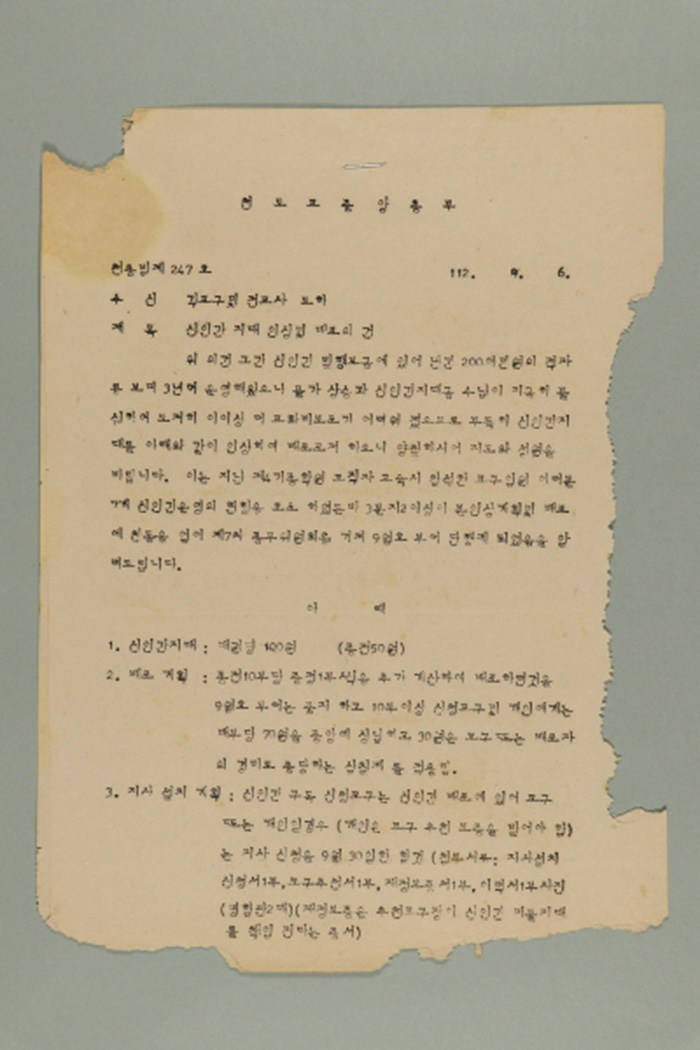 천 도 교 중 앙 총 부
천총법제 247 호 112. 9. 6.
수 신 각교구및 전교사 도하
제 목 신인간 지대 인상및 배포의 건
위 의건 그간 신인간 발행보급에 있어 년간 200여만원의 적자
를 보며 3년여 운영해왔으나 물가 상승과 신인간지대금 수납이 지극히 불
심하여 도저히 이이상 더 유지 어려워 부득히 신인간지
대를 아래와 같이 인상하여 배포코저 하오니 양찰하시어 지도와 성원을
바랍니다. 이는 지난 교역자 교육시 참석한 교구임원 여러분
에게 신인간운영의 현황을 호소 하였든바 3분지2이상이 본인상계획및 배포
에 찬동을 얻어 제7차 종무위원회를 거쳐 9월호 부터 단행케 되었음을 알
려드립니다.
아 래
1. 신인간지대 : 매권당 100원 (종전50원)
2. 배포 계획 : 종전10부당 증정1부식을 추가 계산하여 배포하던것을
9월호 부터는 중지 하고 10부이상 신청교구및 개인에게는
매부당 70원을 총부에 상납하고 30원은 교구 또는 배포자
의 경비로 충당하는 실시제 를 적용함.
3. 지사 설치 계획 : 신인간 구독 신청교구는 신인간 배포에 있어 교구
또는 개인일경우 (개인은 교구 추천 보증을 받어야 함)
는 지사 신청을 9월 30일한 할것 (첨부서류: 지사설치
신청서1부, 교구추천서1부, 재정보증서1부, 이력서1부사진
(명함판2매)(재정보증은 추천교구장이 신인간 미불지대
를 책임 진다는 증서)